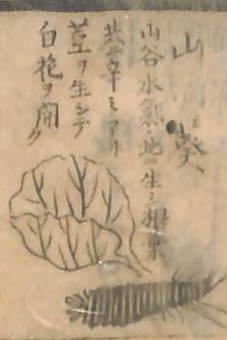 山葵
山谷水氣ノ地ニ生シ根葉
共ニ辛ミアリ
莖ヲ生シテ
白花ヲ開ク